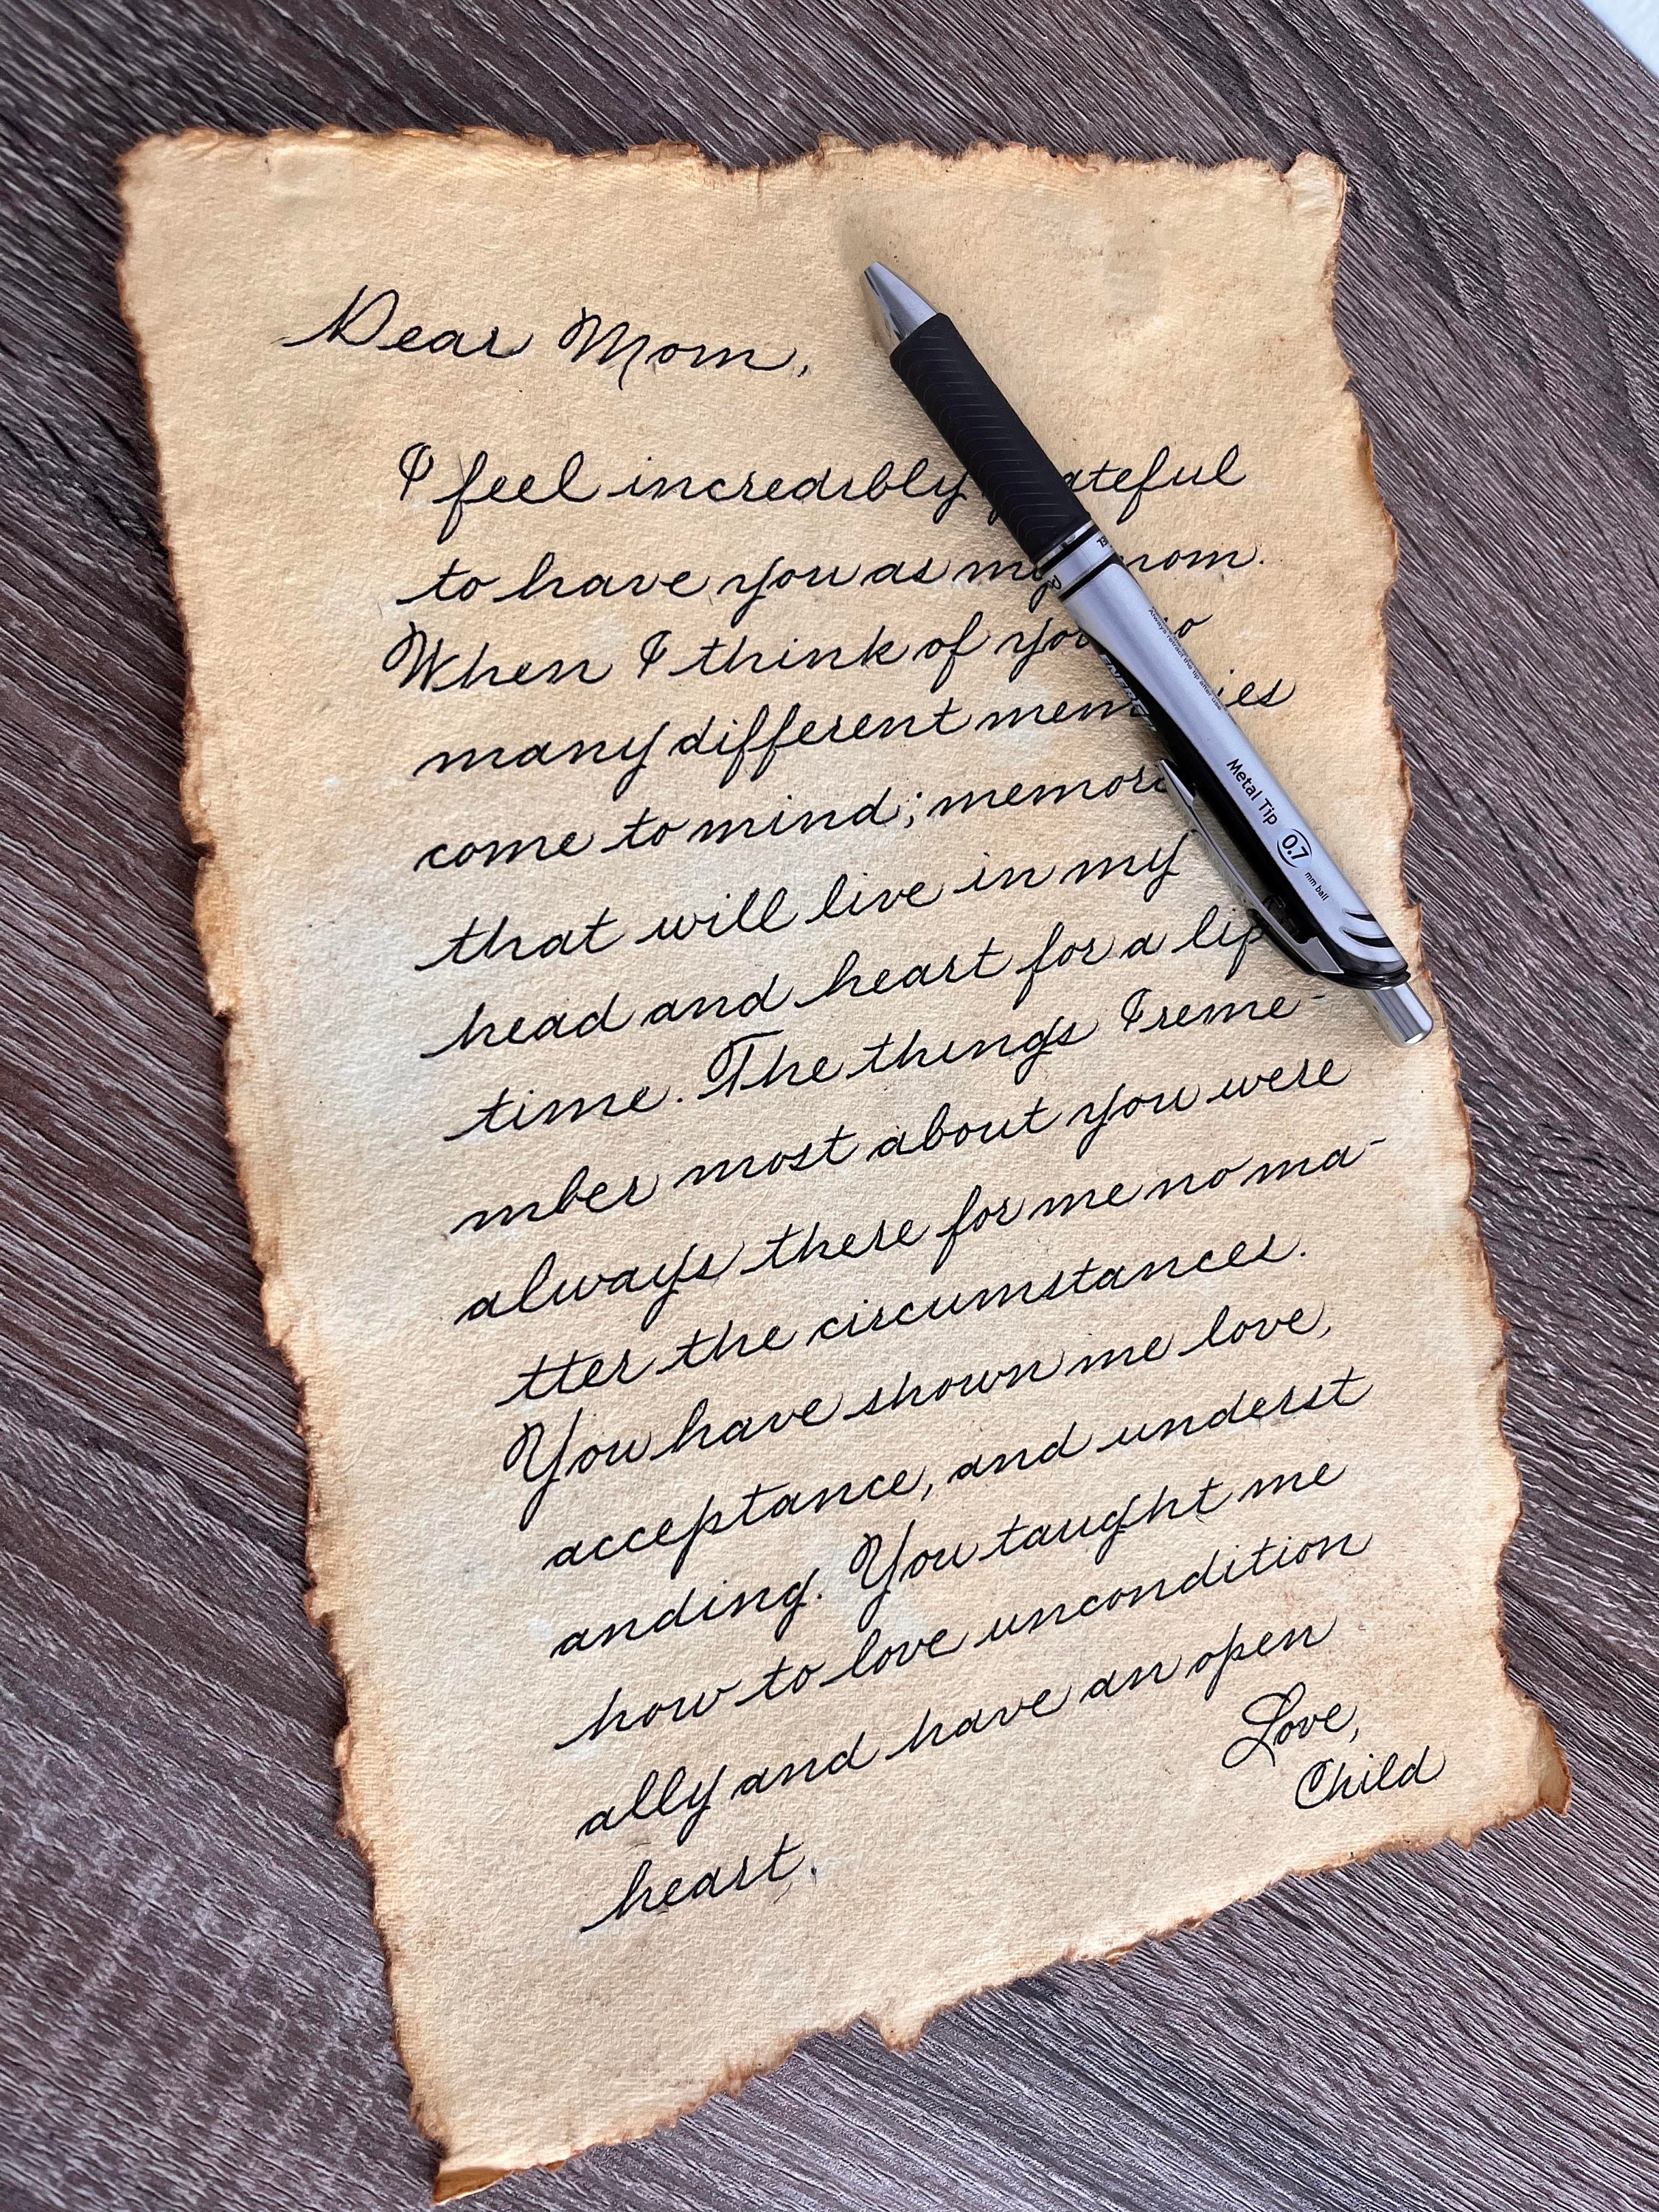 Dear Mom,
I feel incredibly grateful
to have you as my mom.
When I think of you so
many different memories
come to mind; memori
that will live in my
head and heart for a lif
time. The things I reme-
mber most about you were
always there for me no ma-
tter the circumstances.
You have shown me love,
acceptance, and underst
anding. You taught me
how to love uncondition
ally and have an open
heart.
Love,
Child
Always retract the tip after use
Metal Tip 0.7 mm ball